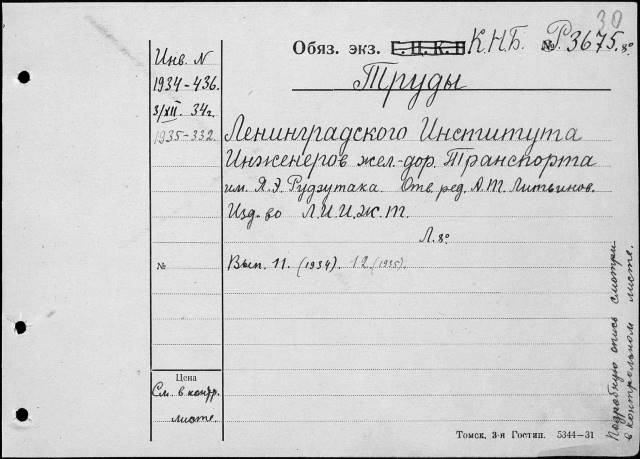 30
Обяз. экз. Г. Ц. К. П. К.Н.Б. № Р3675.8°
Труды
Инв. N
1934-436.
3/XII. 34г.
1935-332.
Ленинградского Института
Инженеров жел.-дор. Транспорта
им. Я. Э. Рудзутака. Отв. ред. А. Т. Литвинов.
Изд-во Л.И.И.Ж.Т.
Л. 8°
№
Вып. 11. (1934). 12. (1935).
Цена
См. в контр.
листе.
Подробную опись смотри
в контрольном листе.
Томск, 3-я Гостип. 5344—31